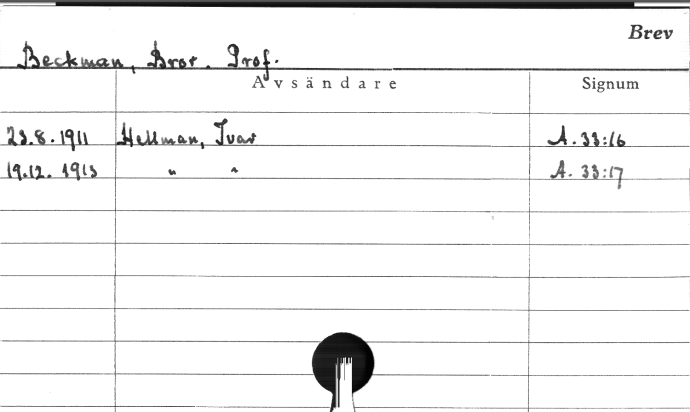 Brev
Beckman, Bror. Prof.
Avsändare Signum
23.8.1911 Hellman, Ivar A. 33:16
19.12.1913 " " A. 33:17